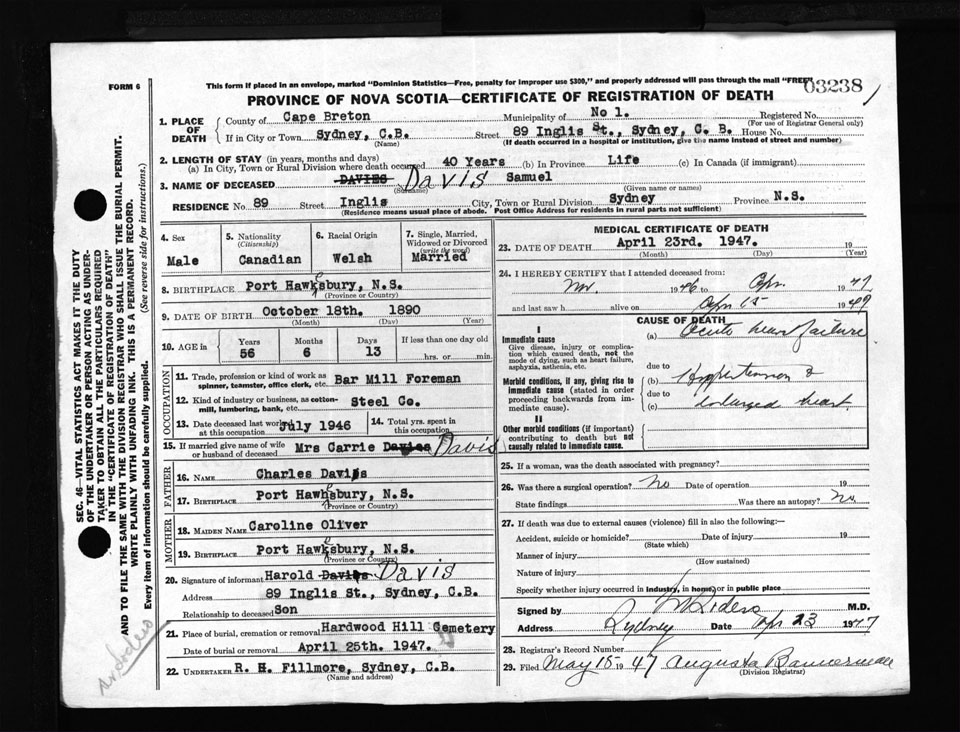 FORM 6
This form if placed in an envelope, marked "Dominion Statistics—Free, penalty for improper use $300," and properly addressed will pass through the mail "FREE"
03238
PROVINCE OF NOVA SCOTIA—CERTIFICATE OF REGISTRATION OF DEATH
1. PLACE OF DEATH
County of Cape Breton Municipality of No 1. Registered No.
(For use of Registrar General only)
If in City or Town Sydney, C.B. Street 89 Inglis St., Sydney, C. B. House No.
(Name) (If death occurred in a hospital or institution, give the name instead of street and number)
2. LENGTH OF STAY (in years, months and days)
(a) In City, Town or Rural Division where death occurred 40 Years (b) In Province Life (c) In Canada (if immigrant)
3. NAME OF DECEASED DAVIES DAVIS Samuel
(Surname) (Given name or names)
RESIDENCE No 89 Street Inglis City, Town or Rural Division Sydney Province N.S.
(Residence means usual place of abode. Post Office Address for residents in rural parts not sufficient)
4. Sex
Male
5. Nationality
(Citizenship)
Canadian
6. Racial Origin
Welsh
7. Single, Married, Widowed or Divorced
(write the word)
Married
8. BIRTHPLACE Port Hawkesbury, N.S.
(Province or Country)
9. DATE OF BIRTH October 18th. 1890
(Month) (Day) (Year)
10. AGE in
Years Months Days If less than one day old
56 6 13 hrs. or min.
OCCUPATION
11. Trade, profession or kind of work as spinner, teamster, office clerk, etc. Bar Mill Foreman
12. Kind of industry or business, as cotton-mill, lumbering, bank, etc. Steel Co.
13. Date deceased last worked at this occupation July 1946
14. Total yrs. spent in this occupation
15. If married give name of wife or husband of deceased Mrs Carrie Davies Davis
FATHER
16. Name Charles Davis
17. Birthplace Port Hawkesbury, N.S.
MOTHER
18. Maiden Name Caroline Oliver
19. Birthplace Port Hawkesbury, N.S.
(Province or Country)
20. Signature of informant Harold Davies Davis
Address 89 Inglis St., Sydney, C.B.
Relationship to deceased Son
21. Place of burial, cremation or removal Hardwood Hill Cemetery
Date of burial or removal April 25th. 1947.
22. UNDERTAKER R. H. Fillmore, Sydney, C.B.
(Name and address)
MEDICAL CERTIFICATE OF DEATH
23. DATE OF DEATH April 23rd. 1947. 19
(Month) (Day) (Year)
24. I HEREBY CERTIFY that I attended deceased from:
1946 to Apr. 1947
and last saw h alive on Apr 15 1947
CAUSE OF DEATH
I
Immediate cause
Give disease, injury or complication which caused death, not the mode of dying, such as heart failure, asphyxia, asthenia, etc.
(a) Acute heart failure
due to
Morbid conditions, if any, giving rise to immediate cause (stated in order proceeding backwards from immediate cause).
(b) Hypertension &
due to
(c) enlarged heart
II
Other morbid conditions (if important) contributing to death but not causally related to immediate cause.
25. If a woman, was the death associated with pregnancy?
26. Was there a surgical operation? No Date of operation 19
State findings Was there an autopsy? No
27. If death was due to external causes (violence) fill in also the following:—
Accident, suicide or homicide? Date of injury 19
(State which)
Manner of injury
(How sustained)
Nature of injury
Specify whether injury occurred in industry, in home, or in public place
Signed by M.D.
Address Sydney Date Apr 23 1947
28. Registrar's Record Number
29. Filed May 15 1947 Augusta Bannerman
(Division Registrar)
SEC. 46—VITAL STATISTICS ACT MAKES IT THE DUTY
OF THE UNDERTAKER OR PERSON ACTING AS UNDER-
TAKER TO OBTAIN ALL THE PARTICULARS REQUIRED
IN THE "CERTIFICATE OF REGISTRATION OF DEATH"
AND TO FILE THE SAME WITH THE DIVISION REGISTRAR WHO SHALL ISSUE THE BURIAL PERMIT.
WRITE PLAINLY WITH UNFADING INK. THIS IS A PERMANENT RECORD.
Every item of information should be carefully supplied. (See reverse side for instructions.)